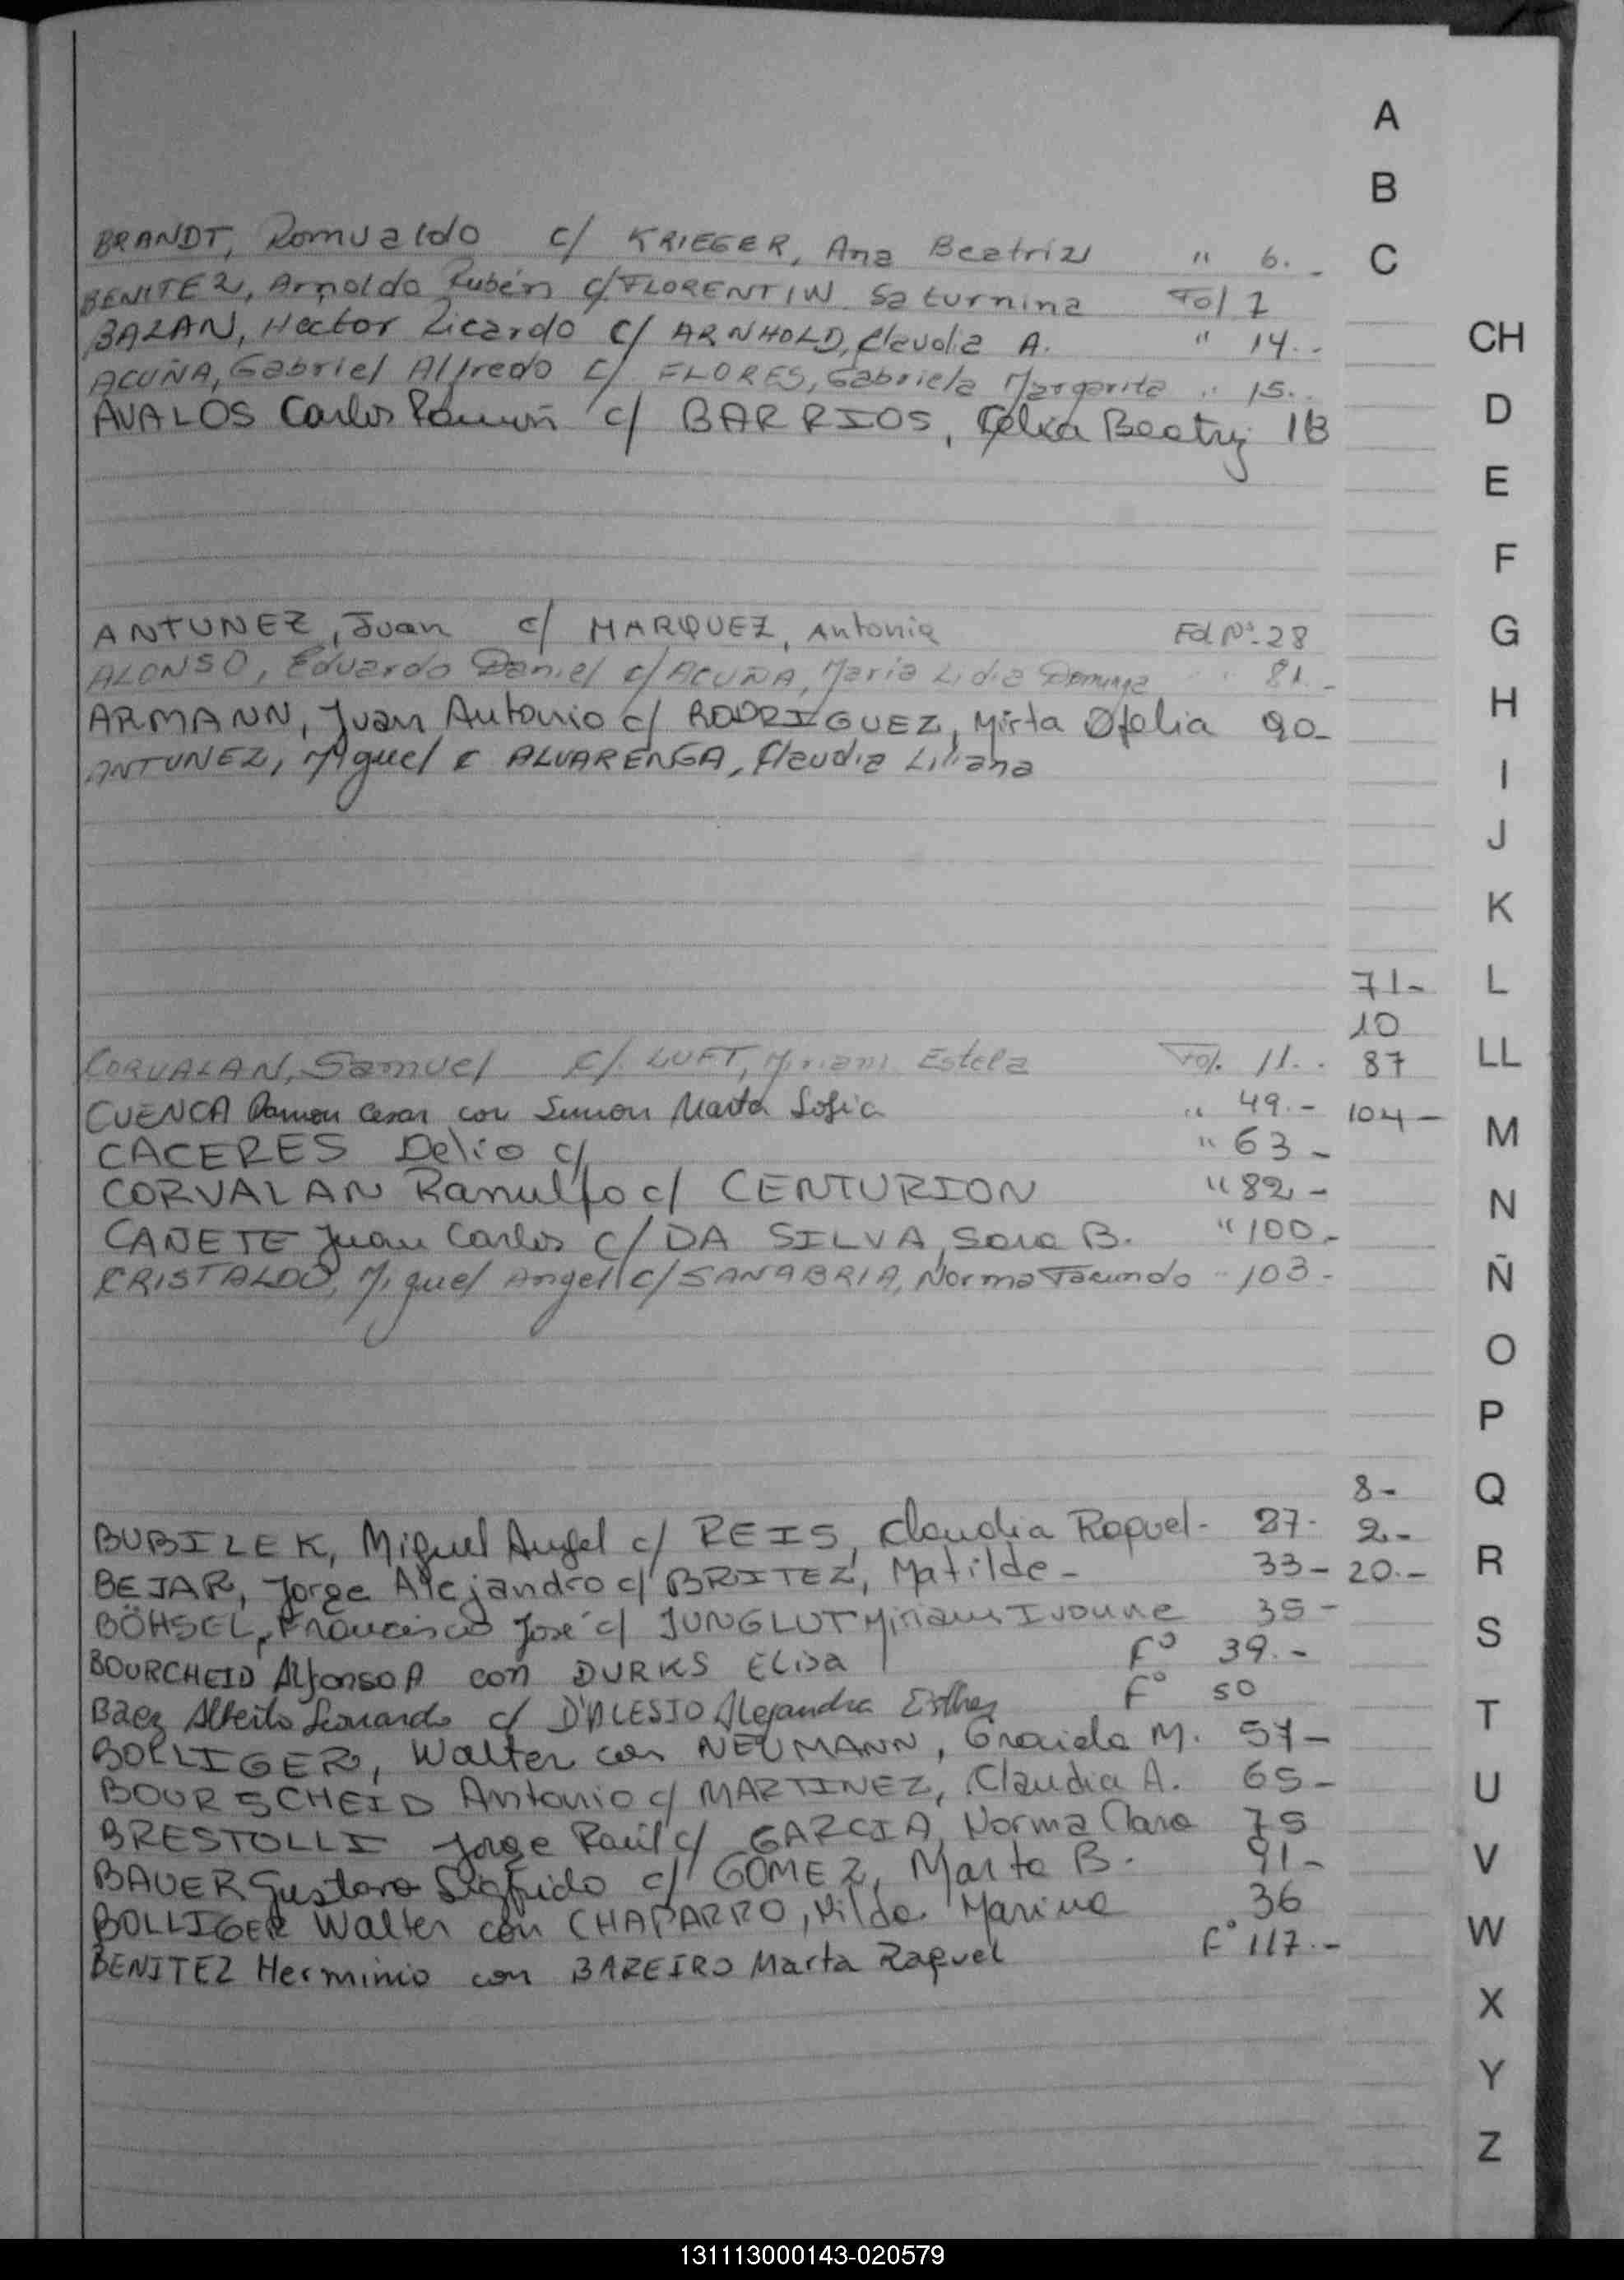 A
B
BRANDT, Romualdo c/ KRIEGER, Ana Beatriz " 6.- C
BENITEZ, Arnoldo Rubén c/ FLORENTIN Saturnina Fol 7
BAZAN, Hector Ricardo c/ ARNHOLD, Claudia A. " 14.- CH
ACUÑA, Gabriel Alfredo c/ FLORES, Gabriela Margarita " 15.-
AVALOS Carlos Ramón c/ BARRIOS, Celia Beatriz 18 D
E
F
ANTUNEZ, Juan c/ MARQUEZ, Antonia Fol Nº 28 G
ALONSO, Eduardo Daniel c/ ACUÑA, Maria Lidia Dominga " 81.-
ARMANN, Juan Antonio c/ RODRIGUEZ, Mirta Ofelia 90- H
ANTUNEZ, Miguel c ALVARENGA, Claudia Liliana I
J
K
71- L
10
CORVALAN, Samuel c/. LUFT, Miriam Estela Fol. 11.- 87 LL
CUENCA Ramon Cesar con Simon Marta Sofia " 49.- 104-
CACERES Delio c/ " 63- M
CORVALAN Ranulfo c/ CENTURION " 82- N
CAÑETE Juan Carlos c/ DA SILVA, Sara B. " 100.-
CRISTALDO, Miguel Angel c/ SANABRIA, Norma Facundo " 103- Ñ
O
P
8- Q
BUBILEK, Miguel Angel c/ REIS, Claudia Raquel- 27- 2.-
BEJAR, Jorge Alejandro c/ BRITEZ, Matilde- 33- 20.- R
BÖHSEL, Francisco José c/ JUNGLUT Miriam Ivonne 35- S
BOURCHEID Alfonso A con DURKS Elisa Fº 39.-
Baez Alberto Leonardo c/ D'ALESIO Alejandra Esther Fº 50 T
BOLLIGER, Walter con NEUMANN, Graciela M. 57-
BOURSCHEID Antonio c/ MARTINEZ, Claudia A. 65- U
BRESTOLLI Jorge Raúl c/ GARCIA, Norma Clara 75
BAUER Gustavo Sigfrido c/ GOMEZ, Marta B. 91- V
BOLLIGER Walter con CHAPARRO, Nilda Marina 36 W
BENITEZ Herminio con BAREIRO Marta Raquel Fº 117.-
X
Y
Z
131113000143-020579